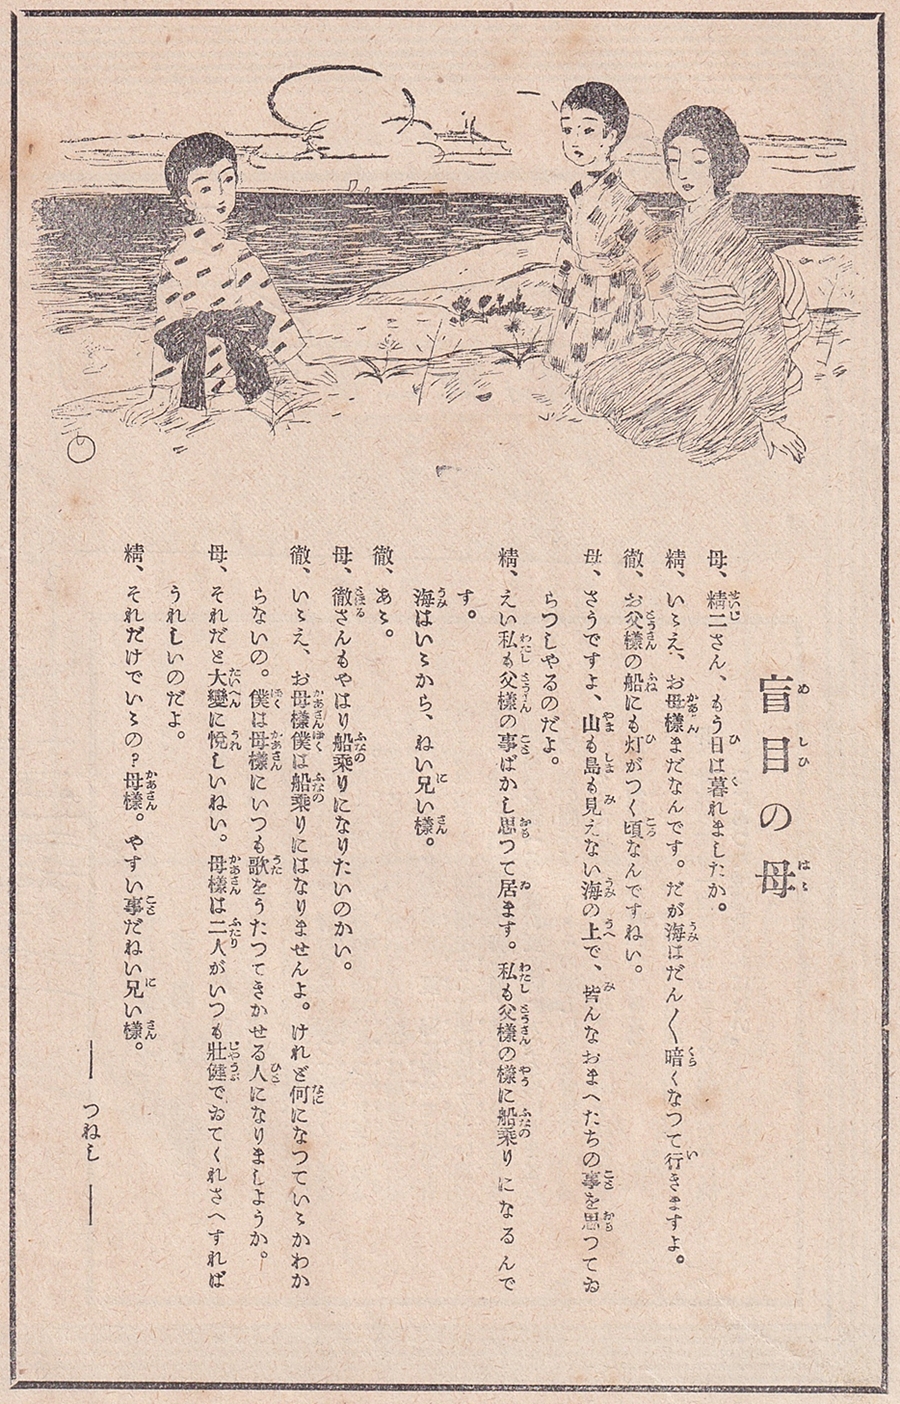 盲目の母
母、精二さん、もう日は暮れましたか。
精、いゝえ、お母樣まだなんです。だが海はだん〱暗くなつて行きますよ。
徹、お父樣の船にも灯がつく頃なんですねい。
母、さうですよ、山も島も見えない海の上で、皆んなおまへたちの事を思つてゐ
らつしやるのだよ。
精、えい私も父樣の事ばかし思つて居ます。私も父樣の樣に船乘りになるんで
す。
海はいゝから、ねい兄い樣。
徹、あゝ。
母、徹さんもやはり船乘りになりたいのかい。
徹、いゝえ、お母樣僕は船乘りにはなりませんよ。けれど何になつていゝかわか
らないの。僕は母樣にいつも歌をうたつてきかせる人になりましようか。
母、それだと大變に悅しいねい。母樣は二人がいつも壯健でゐてくれさへすれば
うれしいのだよ。
精、それだけでいゝの?母樣。やすい事だねい兄い樣。
── つねし ──